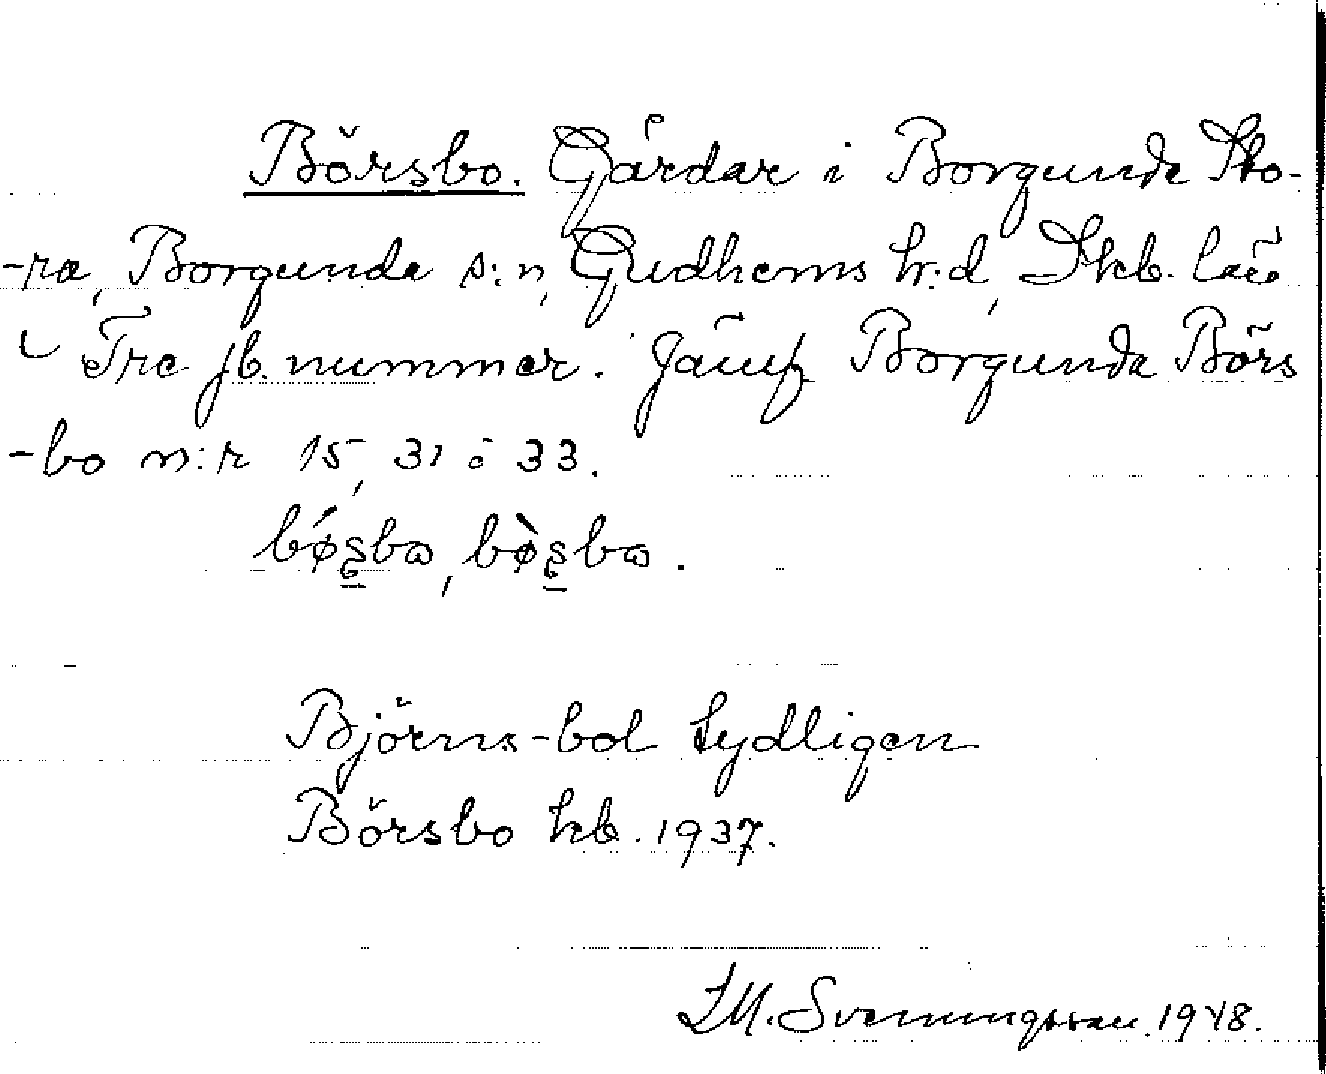 Börsbo. Gårdar i Borgunda Sto-
-ra, Borgunda s:n, Gudhems h:d, Skb. län
Tre jb. nummer. Jämf Borgunda Börs
-bo n:r 15, 31 o 33.
Björns-bol tydligen
Börsbo kb. 1937.
J.M. Svenningsson. 1948.